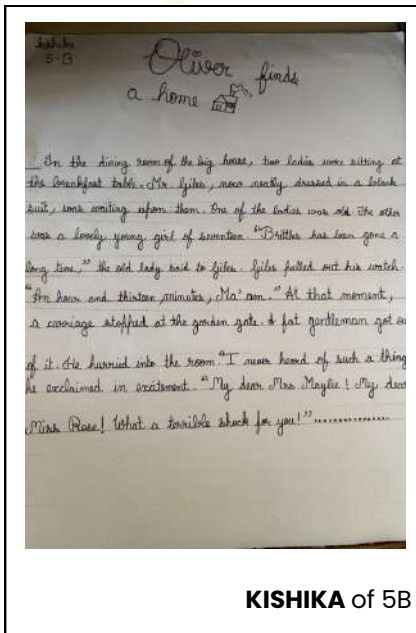 Kishika
5-B
Oliver finds
a home
In the dining room of the big house, two ladies were sitting at
the breakfast table. Mr Giles, now neatly dressed in a black
suit, was waiting upon them. One of the ladies was old. The other
was a lovely young girl of seventeen. "Brittles has been gone a
long time," the old lady said to Giles. Giles pulled out his watch.
"An hour and thirteen minutes, Ma'am." At that moment,
a carriage stopped at the garden gate. A fat gentleman got ou
of it. He hurried into the room. "I never heard of such a thing
he exclaimed in excitement. "My dear Mrs Maylie! My dear
Miss Rose! What a terrible shock for you!"...............
KISHIKA of 5B